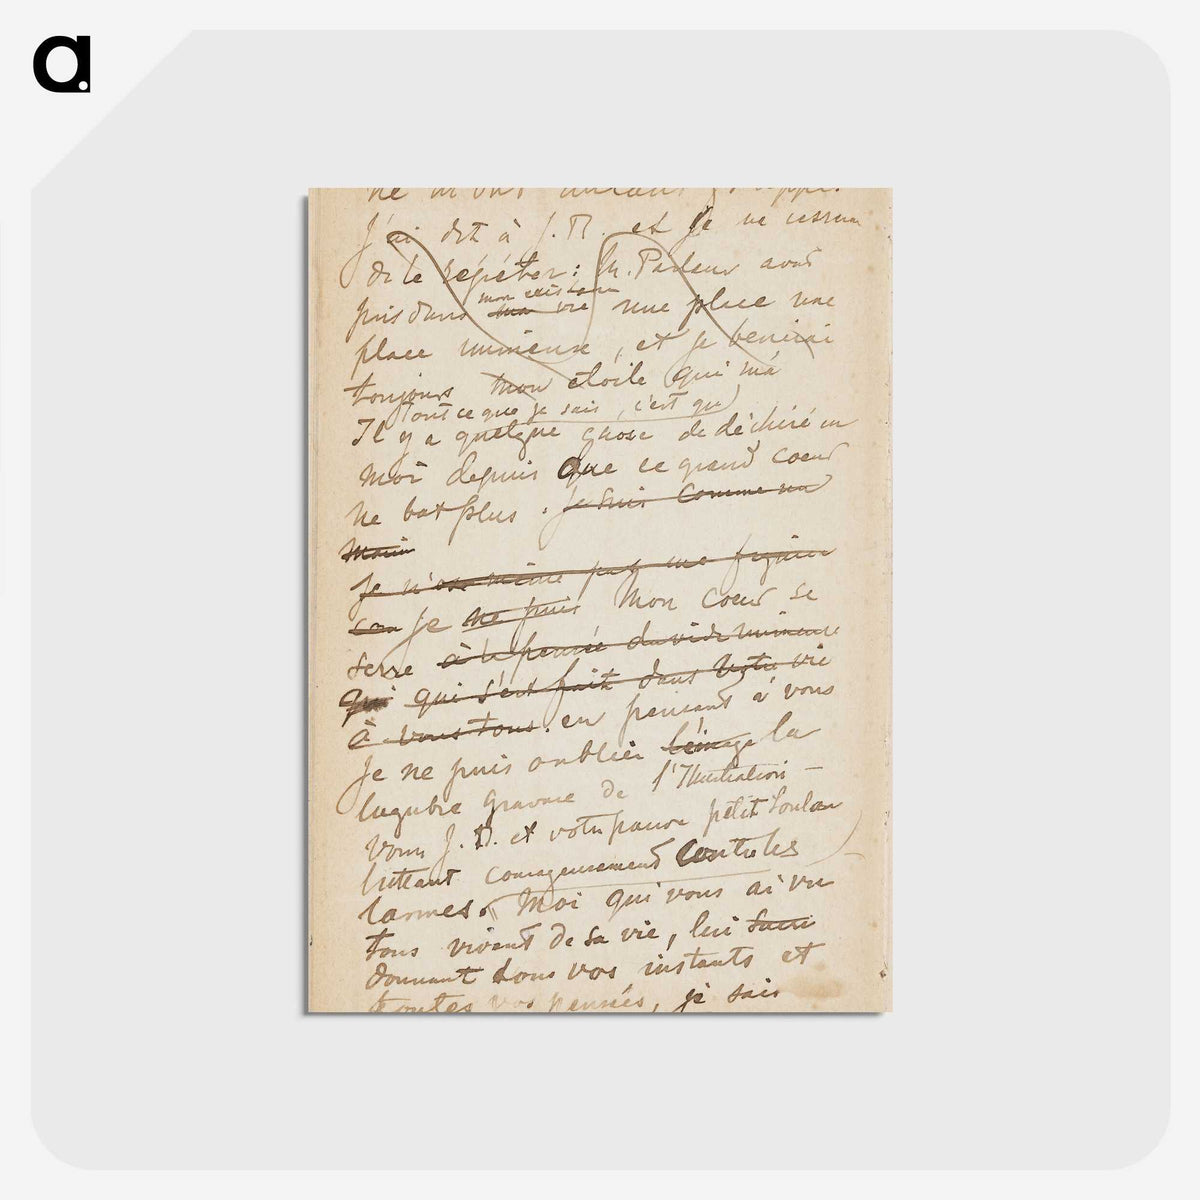 a.
ne m'ont autant
J'ai dit à J. B. et je ne cesserai
de le répéter : M. Pasteur avait
pris dans ma vie une place une
mon existence
place immense, et je bénirai
toujours mon étoile qui m'a
Tout ce que je sais, c'est qu'
Il y a quelque chose de déchiré en
moi depuis que ce grand coeur
ne bat plus. je suis comme un
marin
Je n'ose même pas me figurer
Je ne puis Mon coeur se
serre à la pensée du vide immense
qui qui s'est fait dans votre vie
à vous tous. en pensant à vous
Je ne puis oublier l'image la
lugubre gravure de l'Illustration –
vous J. B. et votre pauvre petit
luttant courageusement contre les
larmes. Moi qui vous ai vu
tous vivant de sa vie, lui
donnant tous vos instants et
toutes vos pensées, je sais